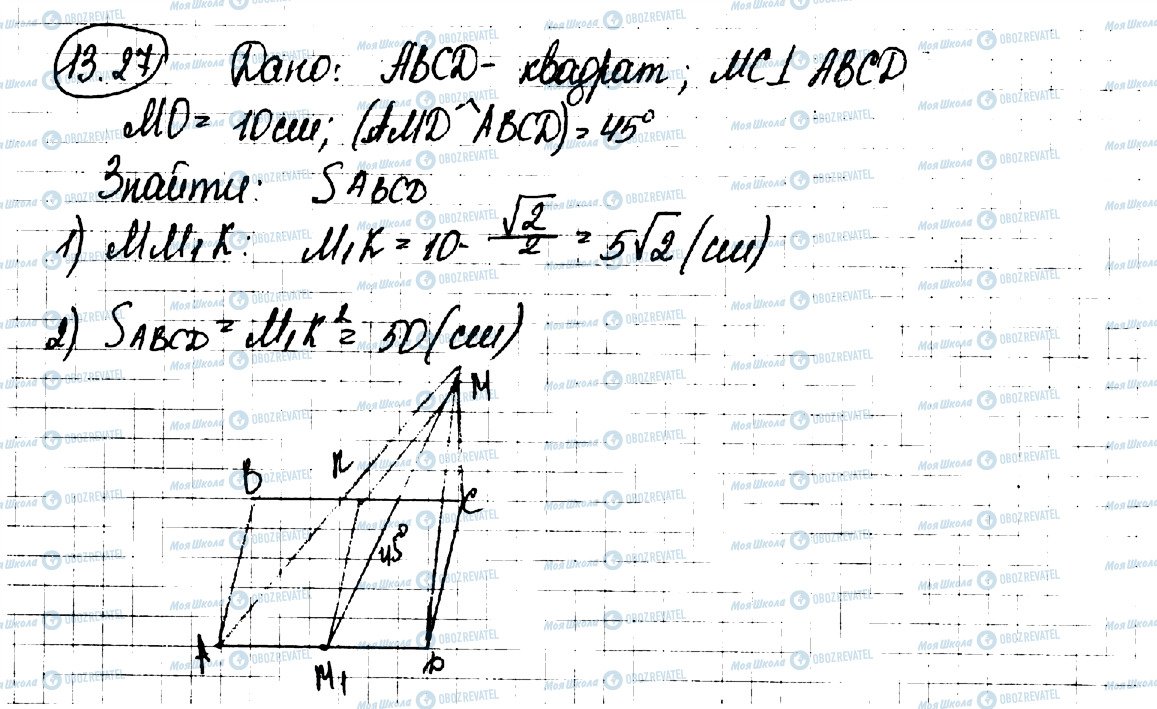 13.27 Дано: ABCD - квадрат; MC⊥ABCD
MD = 10 см; (AMD^ABCD) = 45°
Знайти: SABCD
1) MM₁K: M₁K = 10 · √2/2 = 5√2 (см)
2) SABCD = M₁K² = 50 (см)
M
B K C
45°
A M₁ D